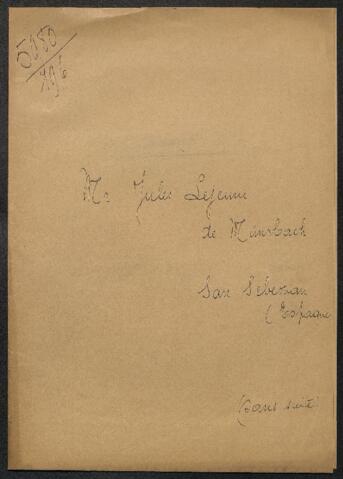 5080
Mr Jules Lejeune
de Mansbach
San Sebastian
(Espagne
(sans suite)